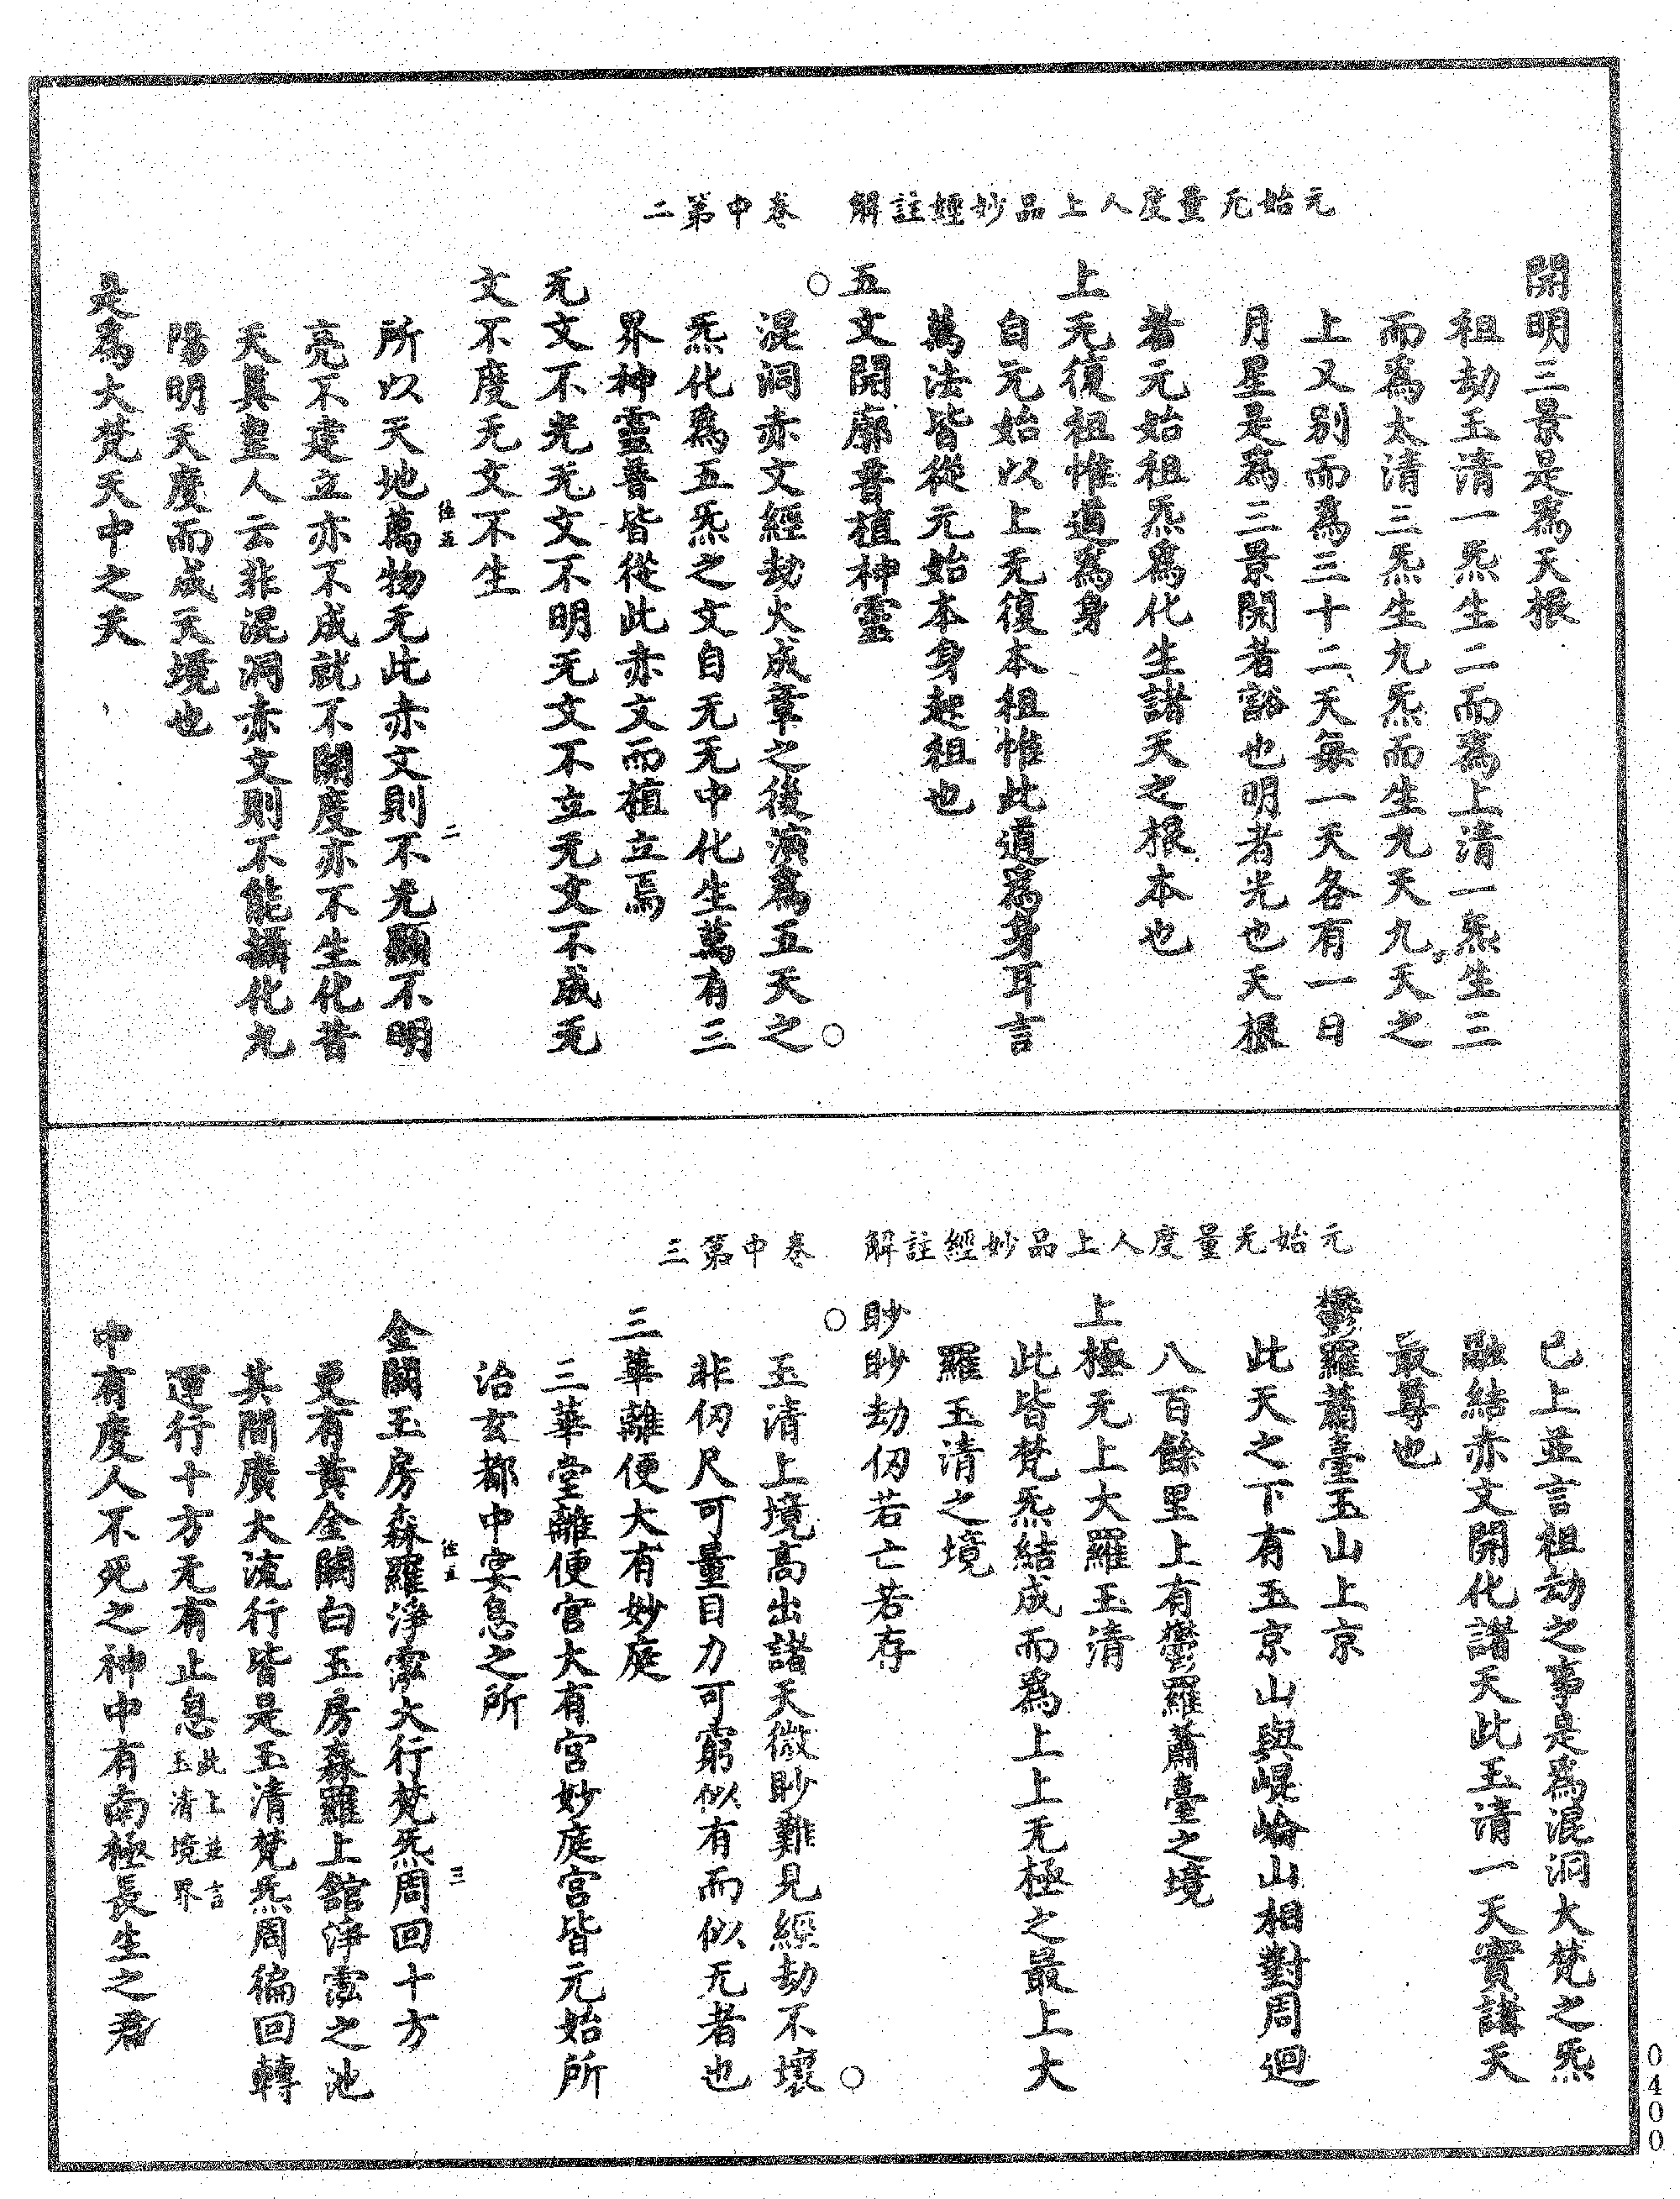 元始无量度人上品妙經註解　卷中第二
開明三景是為天根
祖劫玉清一炁生二而為上清一炁生三
而為太清三炁生九炁而生九天九天之
上又別而為三十二天每一天各有一日
月星是為三景開者豁也明者光也天根
者元始祖炁為化生諸天之根本也
上无復祖惟道為身
自元始以上无復本祖惟此道為身耳言
萬法皆從元始本身起祖也
五文開廓普植神靈
○混洞赤文經劫火成章之後演為五天之○
炁化為五炁之文自无无中化生萬有三
界神靈普皆從此赤文而植立焉
无文不光无文不明无文不立无文不成无
文不度无文不生
所以天地萬物无此赤文則不光顯不明
亮不建立亦不成就不開度亦不生化昔
天真皇人云非混洞赤文則不能攝化九
陽明天度而成天境也
是為大梵天中之天
二
元始无量度人上品妙經註解　卷中第三
已上並言祖劫之事是為混洞大梵之炁
融結赤文開化諸天此玉清一天實諸天
最尊也
鬱羅蕭臺玉山上京
此天之下有玉京山與崐崘山相對周迴
八百餘里上有鬱羅蕭臺之境
上極无上大羅玉清
此皆梵炁結成而為上上无極之最上大
羅玉清之境
眇眇劫仞若亡若存
○玉清上境高出諸天微眇難見經劫不壞○
非仞尺可量目力可窮似有而似无者也
三華離便大有妙庭
三華堂離便宮大有宮妙庭宮皆元始所
治玄都中宴息之所
金闕玉房森羅淨泓大行梵炁周回十方
更有黃金闕白玉房森羅上館淨泓之池
其間廣大流行皆是玉清梵炁周徧回轉
運行十方无有止息此上並言玉清境界
中有度人不死之神中有南極長生之君
三
0400